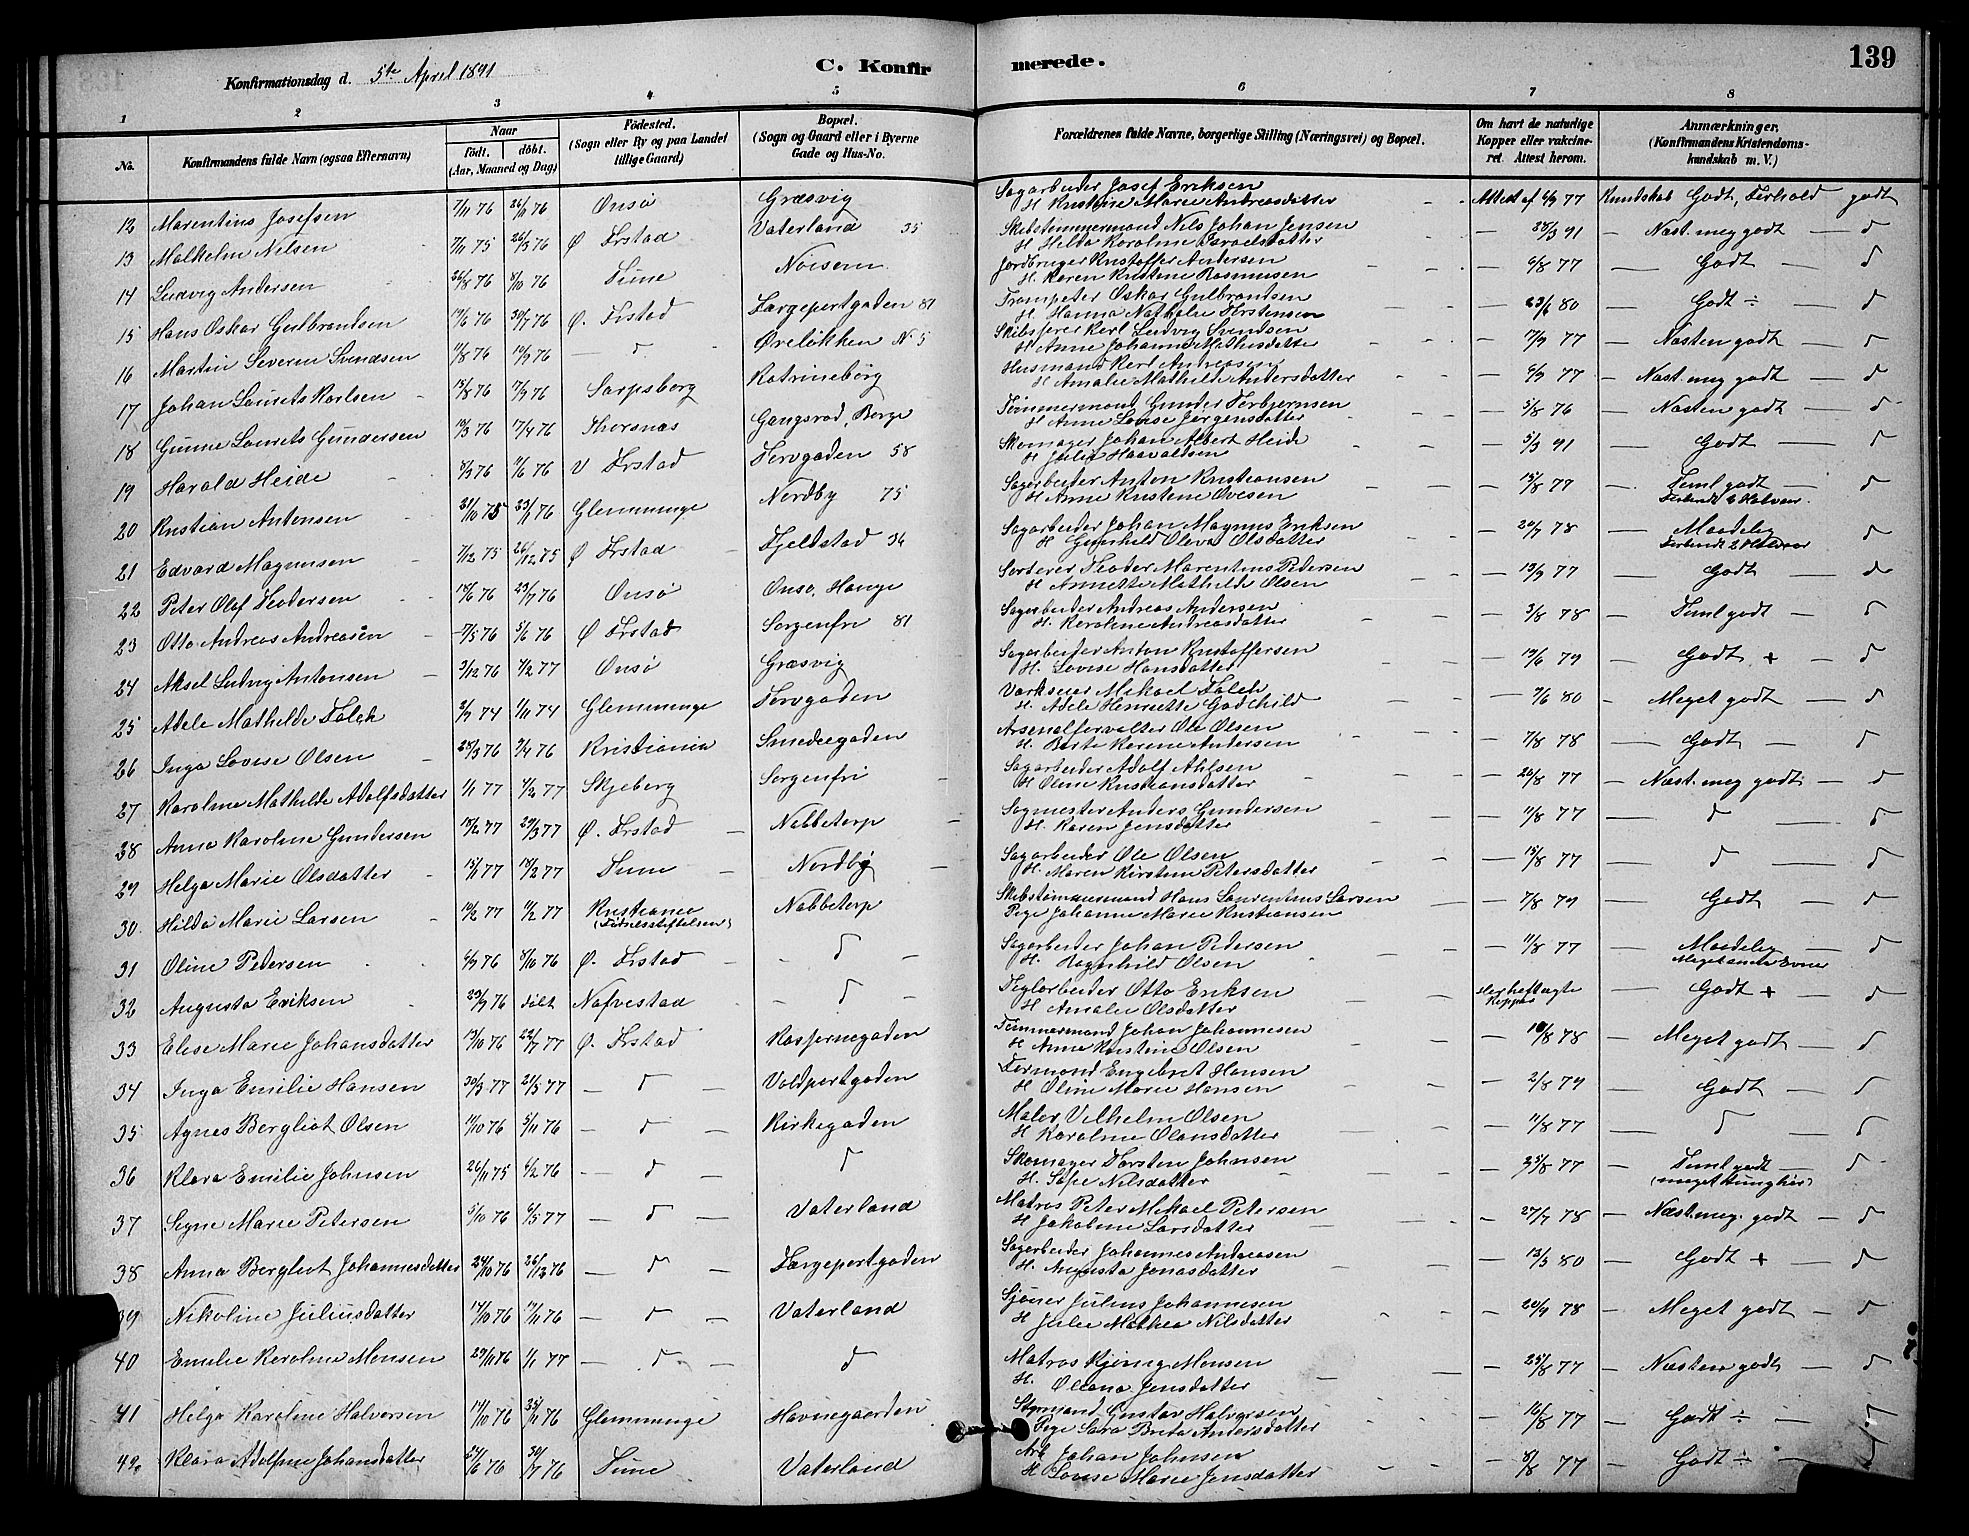 139
Konfirmationsdag d. 5te April 1891
C. Konfirmerede.
1 2 3 4 5 6 7 8
No. Konfirmandens fulde Navn (ogsaa Efternavn) Naar født. døbt. (Aar, Maaned og Dag) Fødested. (Sogn eller By og paa Landet tillige Gaard) Bopæl. (Sogn og Gaard eller i Byerne Gade og Hus-No. Forældrenes fulde Navne, borgerlige Stilling (Næringsvei) og Bopæl. Om havt de naturlige Kopper eller vakcineret. Attest herom. Anmærkninger. (Konfirmandens Kristendomskundskab m. V.)
12 Marentius Josefsen 7/11 76 26/11 76 Onsø Græsvig Sagarbeider Josef Eriksen
H. Kristine Marie Andreasdatter - - Attest af 6/9 77 Kundskab Godt, Forhold godt
13 Malkolm Nilsen 7/11 75 26/3 76 Ø Frstad Vaterland 35 Skibstømmermand Nils Johan Jensen
H. Hilda Karoline Israelsdatter — 28/3 91 — Næst. meg godt — d
14 Ludvig Andersen 26/8 76 8/10 76 Tune Noisom Jordbruger Kristoffer Andersen
H. Karen Kristine Rasmusen — 6/8 77 — Godt — d
15 Hans Oskar Gulbrandsen 19/6 76 30/7 76 Ø. Frstad Færgeportgaden 81 Trompeter Oskar Gulbrandsen
H. Hanna Nathalie Torstensen — 23/6 80 — Godt ÷ — d
16 Martin Severin Svendsen 11/8 76 10/9 76 — d Øreløkken N 5 Skibsfører Karl Ludvig Svendsen
H Anne Johanne Mathisdatter — 17/9 77 — Næsten godt — d
17 Johan Laurits Karlsen 15/8 76 17/9 76 Sarpsborg Katrineborg Husmand Karl Andreasen
H Amalie Mathilde Andersdatter — 6/9 77 — Næst. meg godt — d
18 Gunne Laurits Gundersen 10/3 76 17/4 76 Thorsnæs Gangsrød, Borge Tømmermand Gunder Torbjørnsen
H Anne Lovise Jørgensdatter — 5/8 76 — Næsten godt — d
19 Harald Heide 8/3 76 11/6 76 V Frstad Torvgaden 58 Skomager Johan Albert Heide
H Julia Haavaldsen — 5/3 91 — Godt — d
20 Kristian Antonsen 21/10 75 23/1 76 Glemminge Nordby 75 Sagarbeider Anton Kristiansen
H Anne Kristine Ovesen — 15/8 77 — Teml godt — d
21 Edvard Magnusen 7/12 75 26/12 75 Ø Frstad Fjeldstad 36 Sagarbeider Johan Magnus Eriksen
H Gunhild Olava Olsdatter — 20/7 78 — Maadelig — d
22 Peter Olaf Teodorsen 10/6 76 23/7 76 Onsø Onsø, Hauge Sorterer Teodor Marentius Pedersen
H Annette Mathilde Olsen — 19/9 77 — Godt — d
23 Otto Andreas Andreasen 7/5 76 5/6 76 Ø Frstad Sorgenfri 81 Sagarbeider Andreas Andersen
H. Karoline Andreasdatter — 3/8 78 — Teml godt — d
24 Aksel Ludvig Antonsen 3/12 76 4/2 77 Onsø Græsvig Sagarbeider Anton Kristoffersen
H. Lovise Hansdatter — 19/6 79 — Godt + — d
25 Adele Mathilde Falch 2/9 74 1/11 74 Glemminge Torvgaden Værkseier Mikael Falch
H. Adele Henriette Godchild — 7/6 80 — Meget godt — d
26 Inga Lovise Olsen 25/3 76 9/4 76 Kristiania Smedjegaden Arsenalforvalter Ole Olsen
H. Berte Karine Andersen — 7/8 78 — Godt — d
27 Karoline Mathilde Adolfsdatter 1/1 77 4/2 77 Skjeberg Sorgenfri Sagarbeider Adolf Ahlsen
H Oline Kristiansdatter — 20/8 77 — Næst. meg godt — d
28 Anna Karoline Gundersen 15/2 77 29/3 77 Ø. Frstad Nabbetorp Sagmester Anders Gundersen
H. Karen Jensdatter — 11/8 77 — d — d
29 Helga Marie Olsdatter 15/1 77 19/2 77 Tune Nordby Sagarbeider Ole Olsen
H. Maren Kirstine Petersdatter — 15/8 77 — d — d
30 Hilda Marie Larsen 10/2 77 11/2 77 Kristiania (Fødselsstiftelsen) Nabbetorp Skibstømmermand Hans Laurentius Larsen
Pige Johanne Marie Kristiansen — 7/8 79 — Godt — d
31 Oline Pedersen 6/9 76 8/10 76 Ø. Frstad - d Sagarbeider Johan Pedersen
H. Ragnhild Olsen — 11/8 77 — Maadelig — d
32 Augusta Eriksen 29/9 76 døbt Nafvestad - d Teglarbeider Otto Eriksen
H Amalie Olsdatter — Godt + — d
33 Elise Marie Johansdatter 19/10 76 22/7 77 Ø. Frstad Kasernegaden Tømmermand Johan Johannesen
H Anna Kristine Olsen — 10/8 78 — Meget godt — d
34 Inga Emilie Hansen 30/3 77 21/5 77 — d — Voldportgaden Formand Engebret Hansen
H Oline Marie Hansen — 2/8 79 — Godt — d
35 Agnes Bergliot Olsen 11/10 76 5/11 76 — d — Kirkegaden Maler Vilhelm Olsen
H Karoline Olausdatter — 11/8 77 — d — d
36 Klara Emilie Johnsen 26/11 75 4/2 76 — d — d Skomager Torsten Johnsen
H. Sofie Nilsdatter — 25/8 77 — Teml godt — d
(meget tunghør)
37 Signe Marie Petersen 5/10 76 6/5 77 — d — Vaterland Matros Peter Mikael Petersen
H Jakobine Larsdatter — 27/7 78 — Næst. meg. godt — d
38 Anna Bergliot Johannesdatter 24/10 76 26/12 76 — d — Færgeportgaden Sagarbeider Johannes Andreasen
H. Augusta Jonasdatter — 13/3 80 — Godt + — d
39 Nikoline Juliusdatter 14/10 76 19/11 76 — d — Vaterland Sjøner Julius Johannesen
H Julie Mathea Nilsdatter — 20/9 78 — Meget godt — d
40 Emilie Karoline Monsen 29/11 76 1/1 77 — d — d Matros Kjønig Monsen
H. Oleana Jensdatter — 25/8 77 — Næsten godt — d
41 Helga Karoline Halvorsen 14/10 76 35/11 76 Glemminge Havnegaarden Styrmand Gustav Halvorsen
Pige Sara Brita Andersdatter — 16/8 77 — Godt ÷ — d
42 Klara Adolfine Johansdatter 24/6 76 30/7 76 Tune Vaterland Arb Johan Johnsen
H Lovise Marie Jensdatter — 8/8 77 — Godt ÷ — d